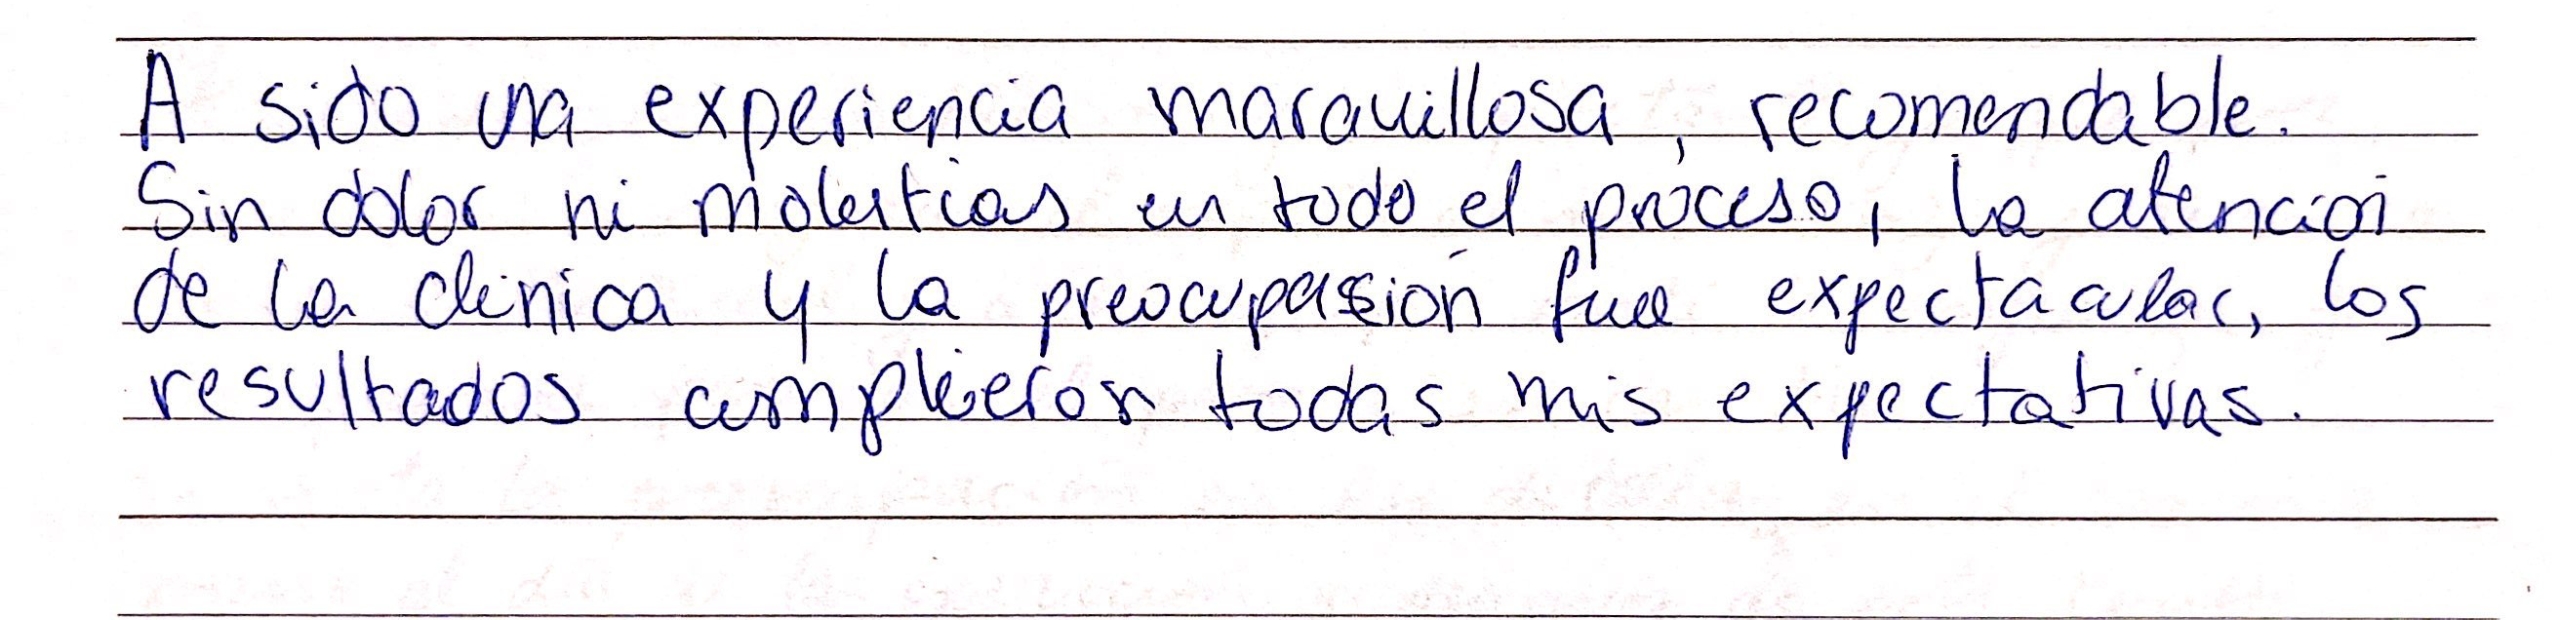 A sido una experiencia maravillosa, recomendable.
Sin dolor ni molestias en todo el proceso, la atención
de la clinica y la preocupasión fue expectacular, los
resultados complieron todas mis expectativas.